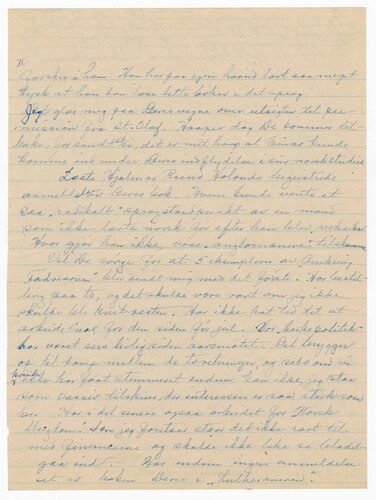 II
Norsken i ham. Han har paa egen haand lært saa meget
tysk at han kan læse lette bøker i det sprog.
Jeg glær mig paa Deres vegne over utsigten til per-
mission fra St. Olaf. Haaper dog De kommer til-
bake, for sandt er, det er mit haap at Einar kunde
komme ind under Deres indflydelse i sine norskstudier.
Læste Hjalmar Rued Holands begeistrede
anmeldelse Deres bok. Hvem kunde vente et
saa "radikalt" sprogstandpunkt av en mand
som ikke lærte norsk før efter han blev voksen
Hvor gjør han ikke vore "anglomanerne" tilskamme
Vil De sørge for at 5 eksemplarer av "Omkring
Fædrearven" blir sendt mig med det første. Har bestil-
ling paa to, og det skulde være rart om jeg ikke
skulde bli kvit resten. Har ikke hat tid til at
arbeide for den siden før jul. Vor politik
har været livlig siden
op til kamp mellem de to retninger, og selv om vi
kvinder
ikke har faat stemmeret endnu kan ikke jeg staa
som passiv tilskuer, der interessen er saa sterk som
her. Har i det senere ogsaa arbeidet for Norsk
Ungdom. Som jeg forstaar staar det ikke rart til
med finanserne og skulde ikke like at bladet
gaa ind. Har endnu ingen anmeldelse
set av boken Deres i "Lutheraneren".